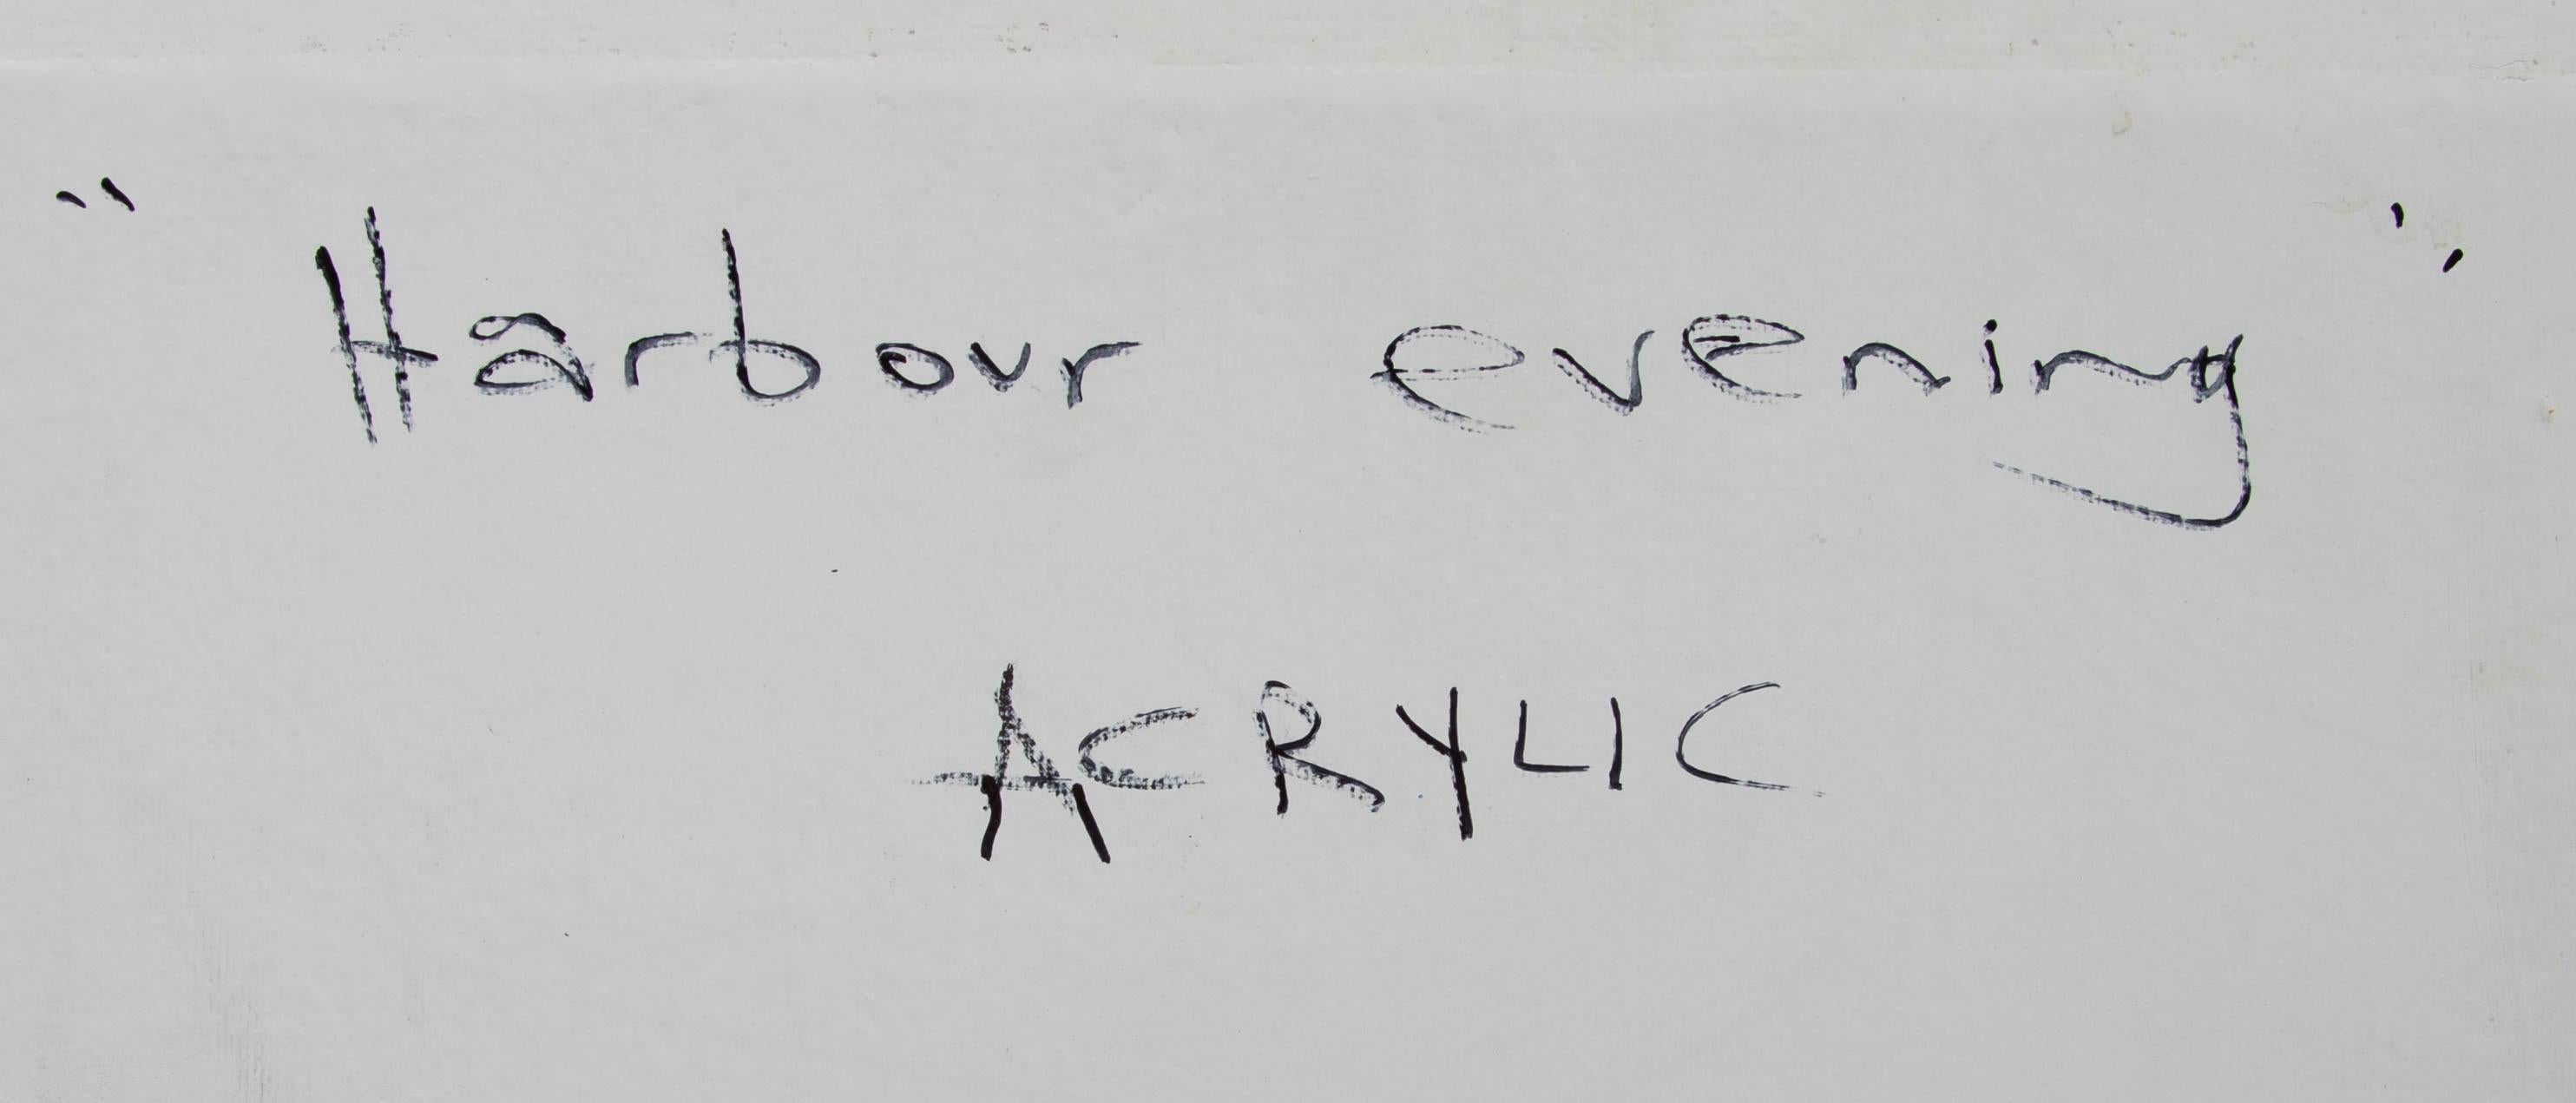 "Harbour evening"
ACRYLIC